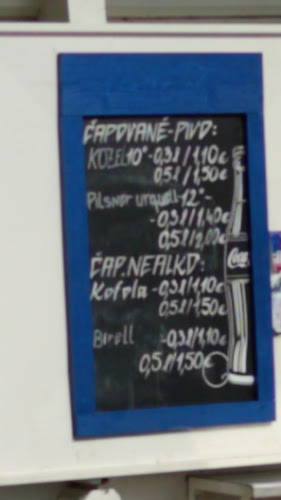 ČAPOVANÉ-PIVO:
KOZEL 10°-0,3l/1,10€
0,5l/1,50€
Pilsner urquell-12°-
-0,3l/1,40€
0,5l/2,00€
ČAP.NEALKO:
Kofola-0,3l/1,10€
0,5l/1,50€
Birell -0,3l/1,10€
0,5l/1,50€
Coca